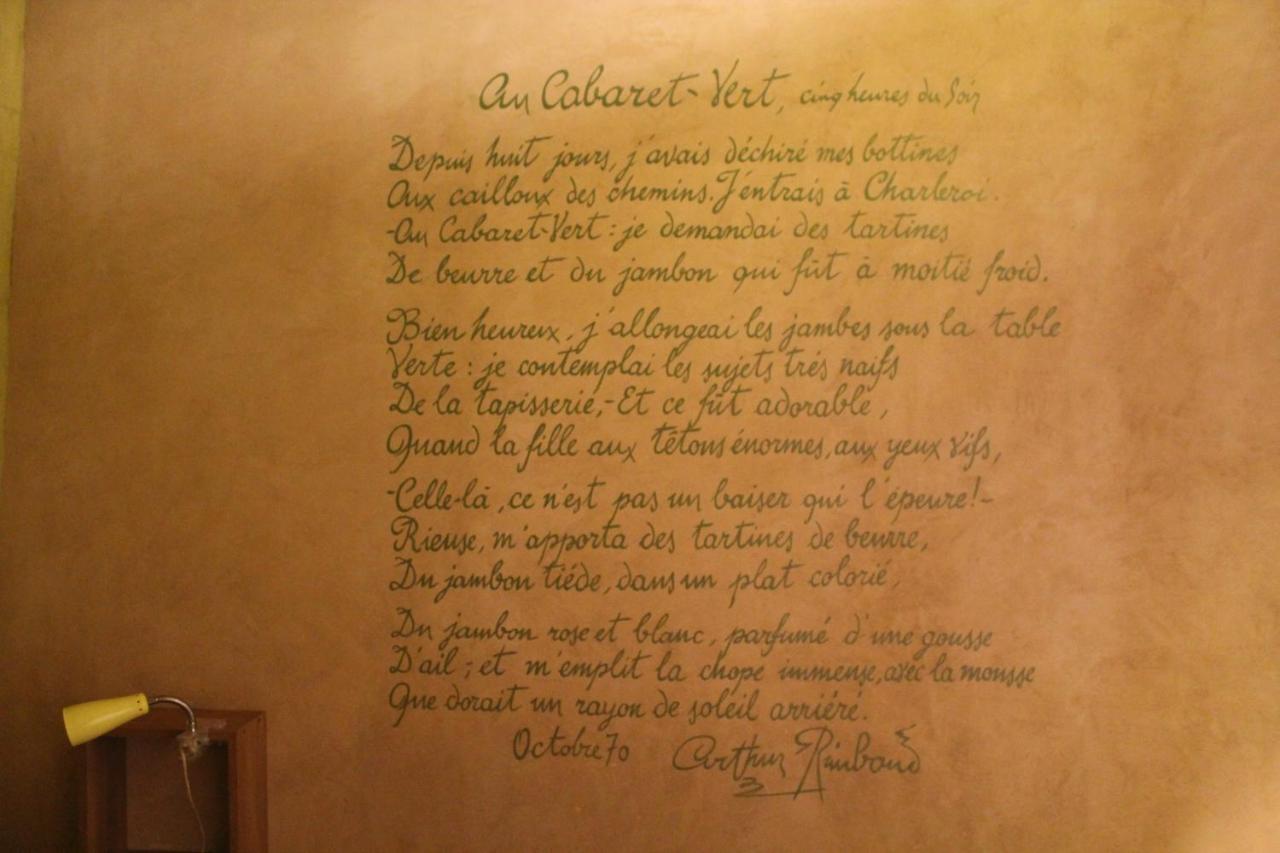 Au Cabaret-Vert, cinq heures du Soir
Depuis huit jours, j'avais déchiré mes bottines
Aux cailloux des chemins. J'entrais à Charleroi.
-Au Cabaret-Vert : je demandai des tartines
De beurre et du jambon qui fût à moitié froid.
Bien heureux, j'allongeai les jambes sous la table
Verte : je contemplai les sujets trés naïfs
De la tapisserie,-Et ce fût adorable,
Quand la fille aux tétons énormes, aux yeux vifs,
-Celle-là, ce n'est pas un baiser qui l'épeure!-
Rieuse, m'apporta des tartines de beurre,
Du jambon tiéde, dans un plat colorié,
Du jambon rose et blanc, parfumé d'une gousse
D'ail ; et m'emplit la chope immense, avec la mousse
Que dorait un rayon de soleil arriéré.
Octobre 70 Arthur Rimbaud